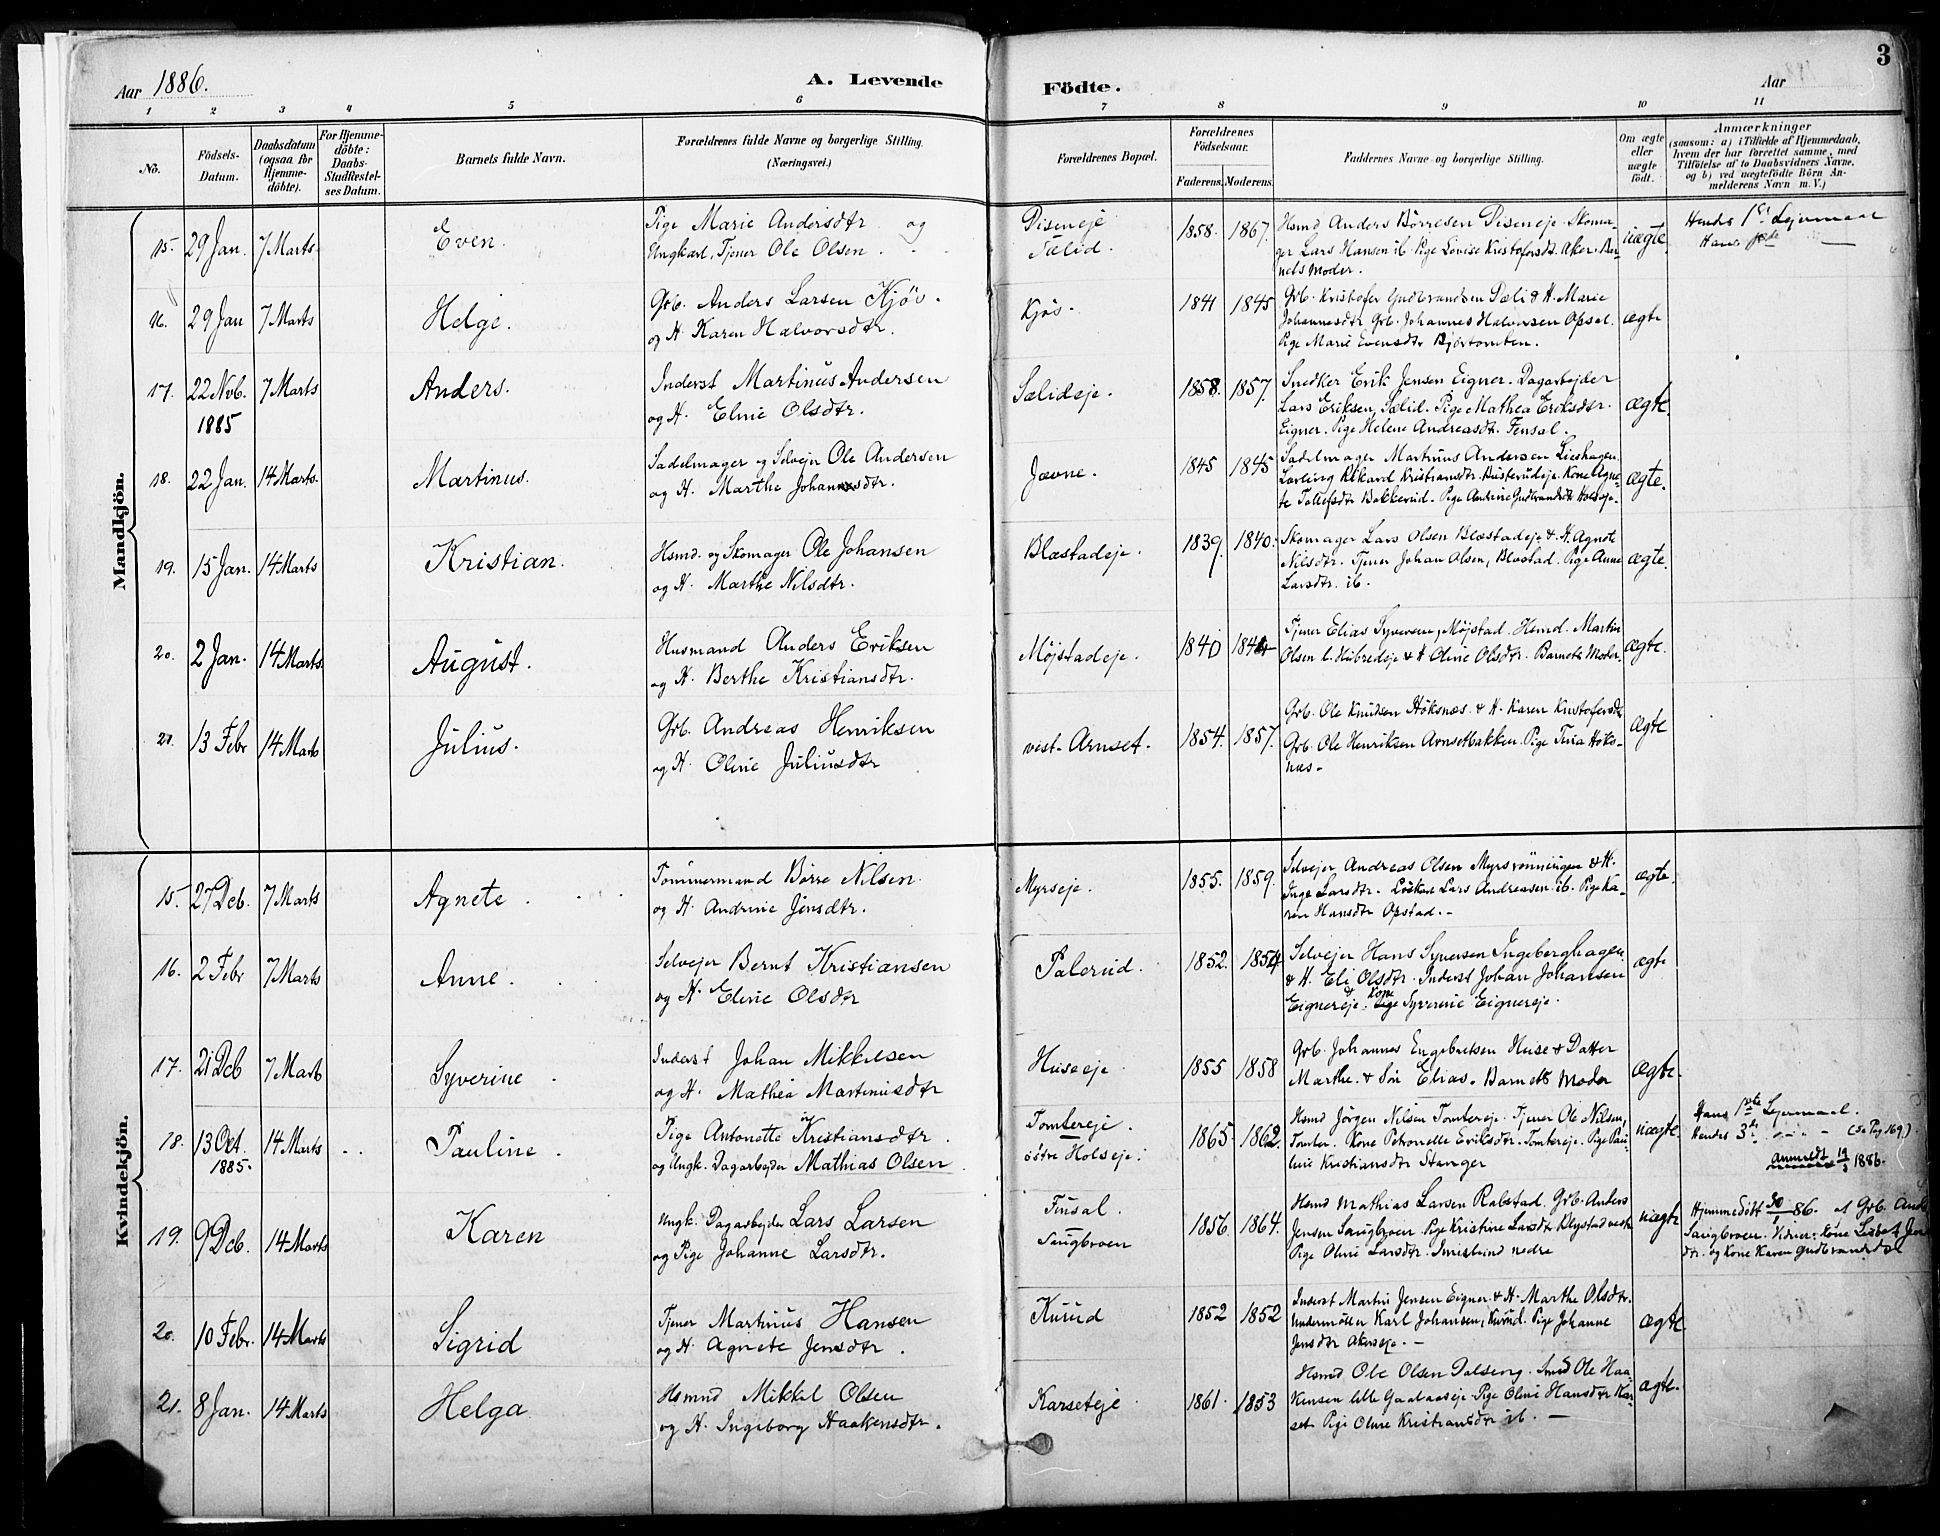 3
Aar 1886. A. Levende Födte. Aar
1 2 3 4 5 6 7 8 9 10 11
No. Födsels-Datum. Daabsdatum (ogsaa for Hjemmedöbte). For Hjemmedöbte: Daabs-Stadfestelses Datum. Barnets fulde Navn. Forældrenes fulde Navne og borgerlige Stilling. (Næringsvei.) Forældrenes Bopæl. Forældrenes Födselsaar. Faderens. Moderens. Faddernes Navne og borgerlige Stilling. Om ægte eller uægte födt. Anmærkninger (saasom: a) i Tilfælde af Hjemmedaab, hvem der har forrettet samme, med Tilföielse af to Daabsvidners Navne, og b) ved uægtefödte Börn Anmelderens Navn m. V.)
Mandkjön.
15. 29 Jan. 7 Marts Even. Pige Marie Andersdtr og
Ungkarl, Tjener Ole Olsen. Diseneje
Sælid. 1858. 1867. Hsmd Anders Börresen Diseneje. Skoma-
ger Lars Hansen ib. Pige Lovise Kristofersdt. Aker. Bar-
nets Moder. uægte. Hendes 1ste Lejermaal
Hans
16. 29 Jan 7 Marts Helge. Grb. Anders Larsen Kjös.
og H. Karen Halvorsdtr. Kjös. 1841 1845 Grb. Kristofer Gudbrandsen Sæli & H. Marie
Johannesdtr Grb. Johannes Halvorsen Opsal.
Pige Marie Evensdtr Bjørtomten. ægte
17. 22 Nvb. 1885 7 Marts Anders. Inderst Martinus Andersen
og H. Eline Olsdtr. Sælideje. 1858. 1857. Snedker Erik Jensen Eigner. Dagarbejder
Lars Eriksen, Sælid. Pige Mathea Eriksdtr.
Eigner. Pige Helene Andreasdt. Finsal. ægte.
18. 22 Jan. 14 Marts. Martinus. Sadelmager og Selvejer Ole Andersen
og H. Marthe Johannesdtr. Jævne. 1845 1845 Sadelmager Martinus Andersen Lieshagen.
Rikard Kristiansdtr. Kone Agne-
te Tollefsdtr Bakkerud. Pige Andrine Gudbrandsdt ægte.
19. 15 Jan. 14 Marts Kristian. Hsmd. og Skomager Ole Johansen
og H. Marthe Nilsdtr. Blæstadeje. 1839. 1840. Skomager Lars Olsen Blæstadeje & H. Agnete
Nilsdtr. Tjener Johan Olsen, Blæstad. Pige Anne
Larsdtr. ib. ægte.
20. 2 Jan. 14 Marts. August. Husmand Anders Eriksen
og H. Berthe Kristiansdtr. Möjstadeje. 1840 1844 Tjener Elias Syversen, Möjstad. Hsmd. Martin
Olsen l. Hibredeje & H Oline Olsdtr. Barnets Moder. ægte.
21. 13 Febr 14 Marts Julius. Grb. Andreas Henriksen
og H. Oline Juliusdtr vest-Arnset. 1854. 1857. Grb. Ole Knudsen Höksnæs. & H. Karen Kristofersdtr
Grb. Ole Henriksen Arnsetbakken. Pige Tina Höks-
næs. ægte
Kvindekjön.
15. 27 Dcb. 7 Marts Agnete. Tömmermand Börre Nilsen
og H. Andrine Jensdtr. Myrseje. 1855. 1859. Selvejer Andreas Olsen Myrsrönningen & H.
Inge Larsdtr. Löskar Lars Andreasen ib. Pige Ka-
ren Hansdtr Opstad. ægte.
16. 2 Febr 7 Marts Anne. Selvejer Bernt Kristiansen
og H. Eline Olsdtr Palerud. 1852. 1854 Selvejer Hans Syversen Ingeberghagen
& H. Eli Olsdtr. Inderst Johan Johansen
Eignereje & Kone Syverine Eignereje. ægte
17. 21 Dcb 7 Marts Syverine Inderst Johan Mikkelsen
og H. Mathea Martinusdtr Huseeje. 1855 1858 Grb. Johannes Engebretsen Huse & Datter
Marthe. & Sön Elias. Barnets Moder ægte.
18. 13 Oct. 1885. 14 Marts Pauline. Pige Antonette Kristiansdtr.
og Ungk. Dagarbejder Mathias Olsen Tomtereje.
östre Holseje. 1865 1862. Hsmd Jörgen Nilsen Tomtereje. Tjener Ole Nilsen,
Tomter. Kone Petronelle Eriksdtr. Tomtereje. Pige Pau-
line Kristiansdtr Stanger uægte. Hans 1ste Lejermaal.
Hendes 3die (se Pag 169).
anmeldt 19/3 1886.
19. 9 Dcb. 14 Marts Karen Ungk. Dagarbejder Lars Larsen
og Pige Johanne Larsdtr. Finsal.
Saugbroen 1856. 1864. Hsmd Mathias Larsen Ralstad. Grb. Anders
Jensen Saugbroen. Pige Kristine Larsdtr Blystad vestre
Pige Oline Larsdtr. nedre uægte Hjemmedöbt 30/1 86. af Grb. And.
Saugbroen. Vidner: Kone Lisbet Jens-
dtr. og Kone Karen Gudbrandsdtr
20. 10 Febr. 14 Marts Sigrid Tjener Martinus Hansen
og H. Agnete Jensdtr. Kurud 1852 1852 Inderst Martin Jensen Eigner. & H. Marthe Olsdtr.
Karl Johansen, Kurud. Pige Johanne
Jensdtr Akerseje. ægte.
21. 8 Jan. 14 Marts Helga Hsmnd Mikkel Olsen
og H. Ingeborg Haakensdtr. Karseteje 1861. 1853 Hsmd Ole Olsen Dalseng. Smed Ole Haa-
kensen lille Gaalaaseje. Pige Oline Hansdtr Kar-
set. Pige Oline Kristiansdtr ib. ægte.